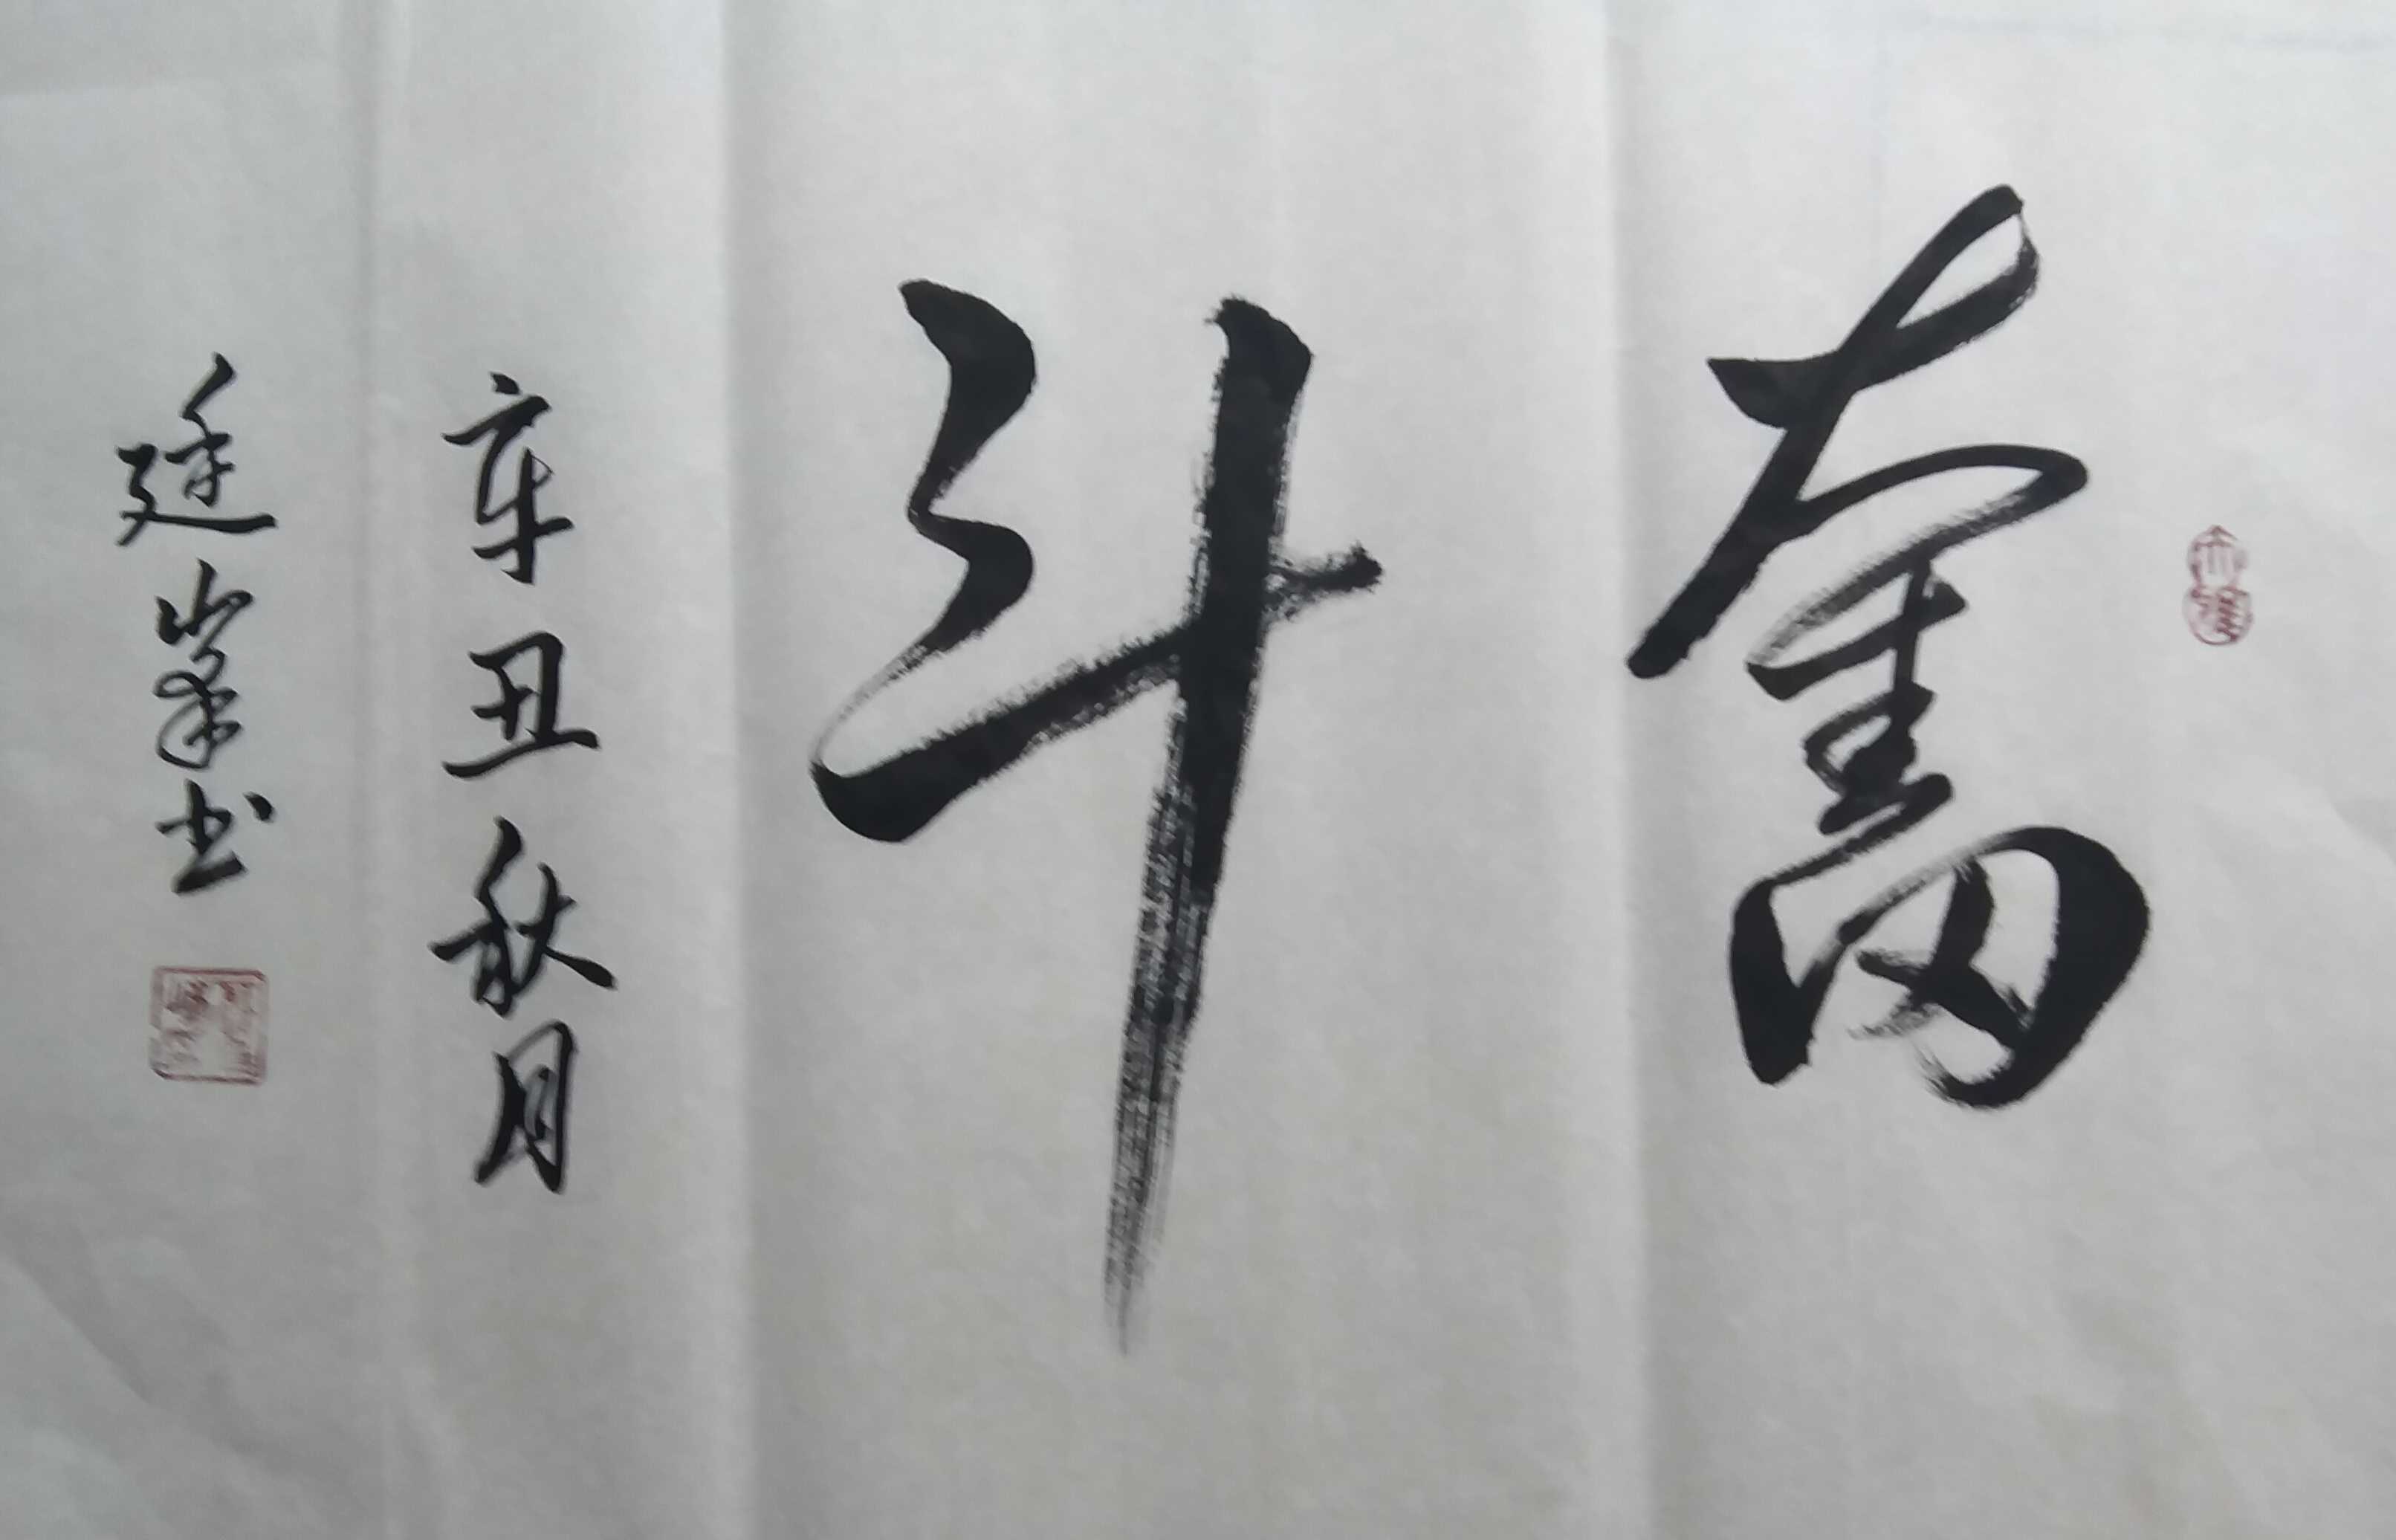 奮斗
辛丑秋月
廷峯书